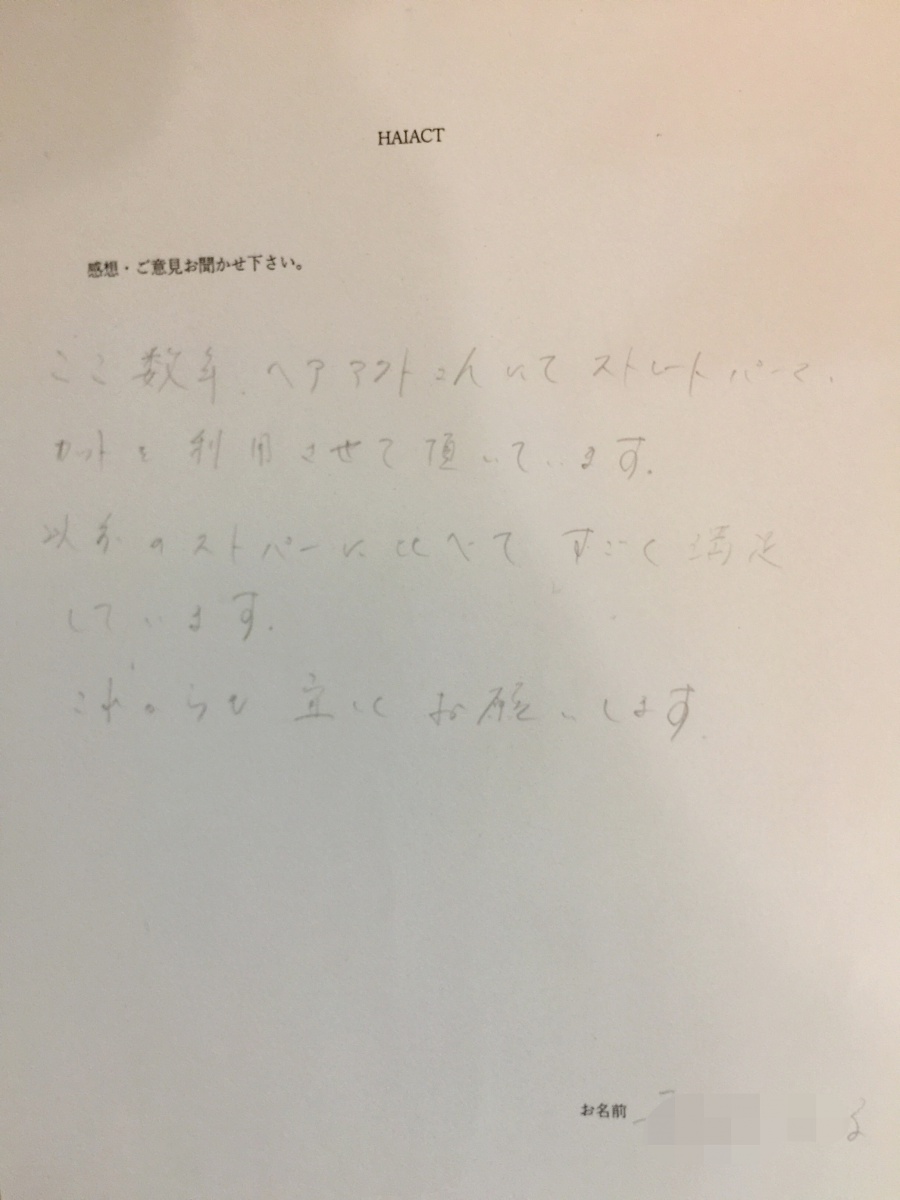 HAIACT
感想・ご意見お聞かせ下さい。
ここ数年、ヘアアクトさんにてストレートパーマ、
カットを利用させて頂いています。
以前のストパーに比べてすごく満足
しています。
これからも宜しくお願いします。
お名前